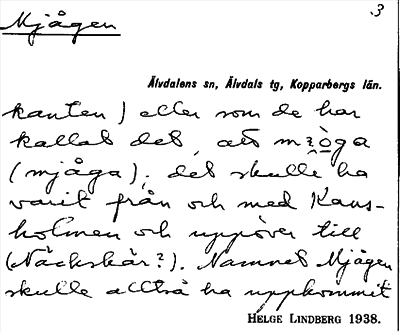 Mjågen
3
Älvdalens sn, Älvdals tg, Kopparbergs län.
kanten) eller som de har
kallat det, att
(mjåga). det skulle ha
varit från och med Kans-
holmen och uppöver till
(Näckskär?). Namnet Mjågen
skulle alltså ha uppkommit
HELGE LINDBERG 1938.